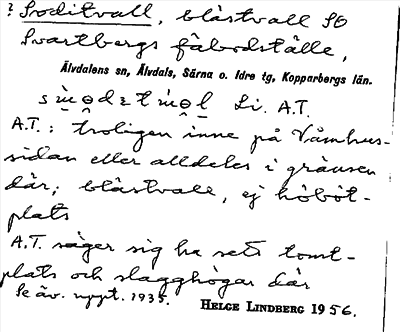 ? Soditvall, blåstvall SO
Svartbergs fäbodställe,
Älvdalens sn, Älvdals, Särna o. Idre tg, Kopparbergs län.
Li. A.T.
A.T.: troligen inne på Våmhus-
sidan eller alldeles i gränsen
där; blåstvall, ej höböt-
plats
A.T. säger sig ha sett tomt-
plats och slagghögar där
Se äv. uppt. 1935. HELGE LINDBERG 1956.